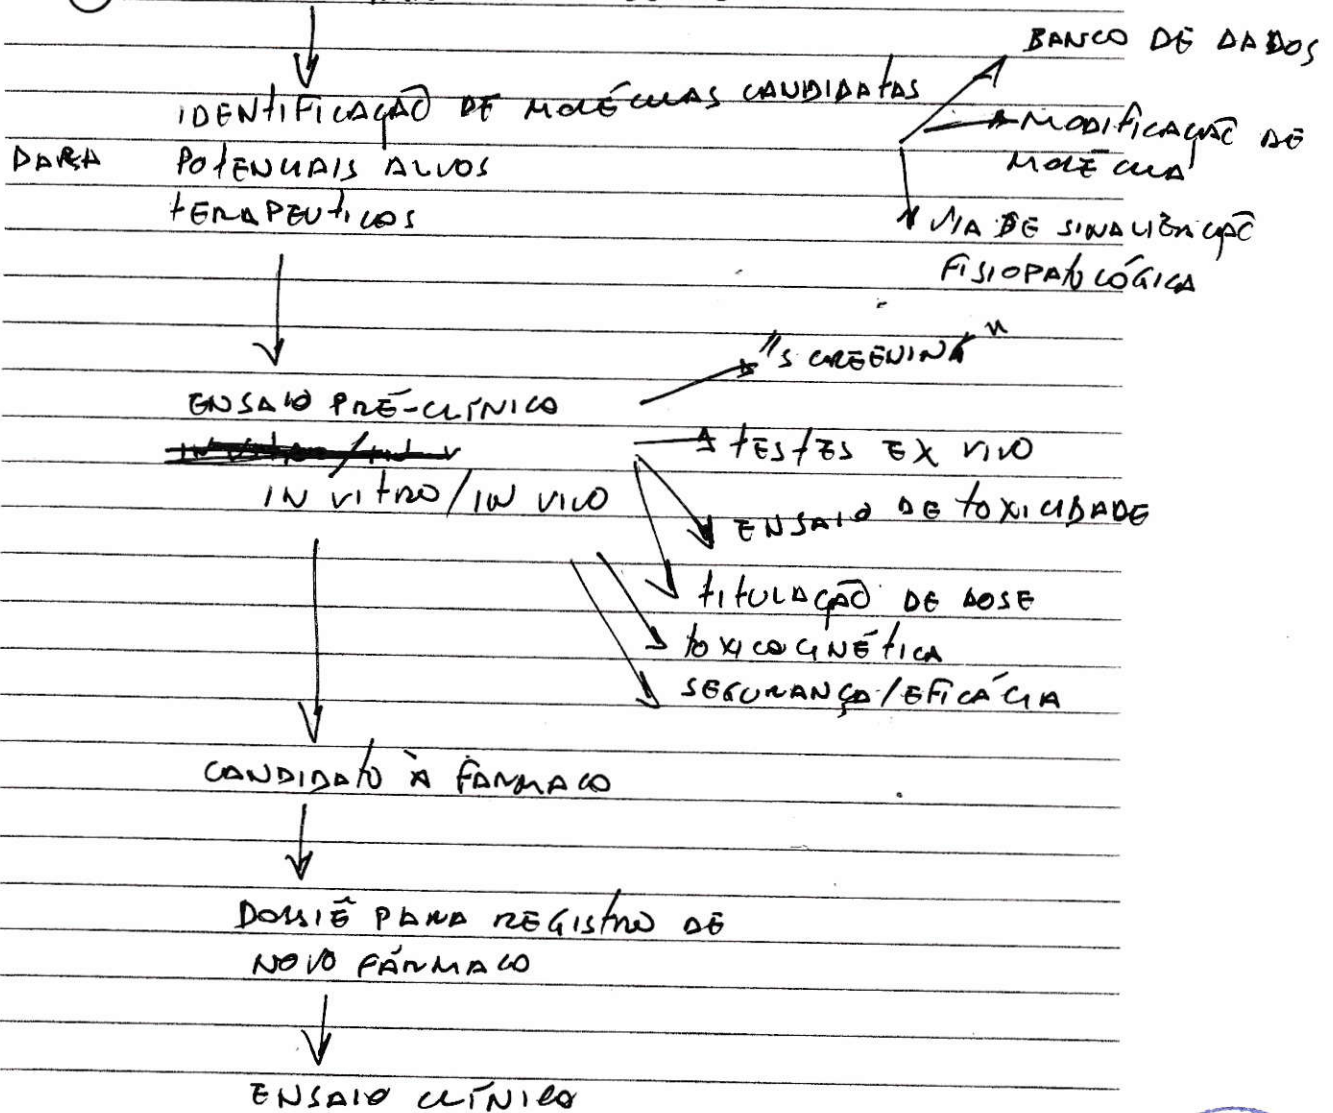 IDENTIFICAÇÃO DE MOLÉCULAS CANDIDATAS
PARA POTENCIAIS ALVOS
TERAPEUTICOS
BANCO DE DADOS
MODIFICAÇÃO DE
MOLÉCULA
VIA DE SINALIZAÇÃO
FISIOPATOLÓGICA
ENSAIO PRÉ-CLÍNICO
IN VITRO/IN VIVO
"SCREENING"
TESTES EX VIVO
ENSAIO DE TOXICIDADE
TITULAÇÃO DE DOSE
TOXICOCINÉTICA
SEGURANÇA/EFICÁCIA
CANDIDATO À FARMACO
DOSSIÊ PARA REGISTRO DE
NOVO FÁRMACO
ENSAIO CLÍNICO